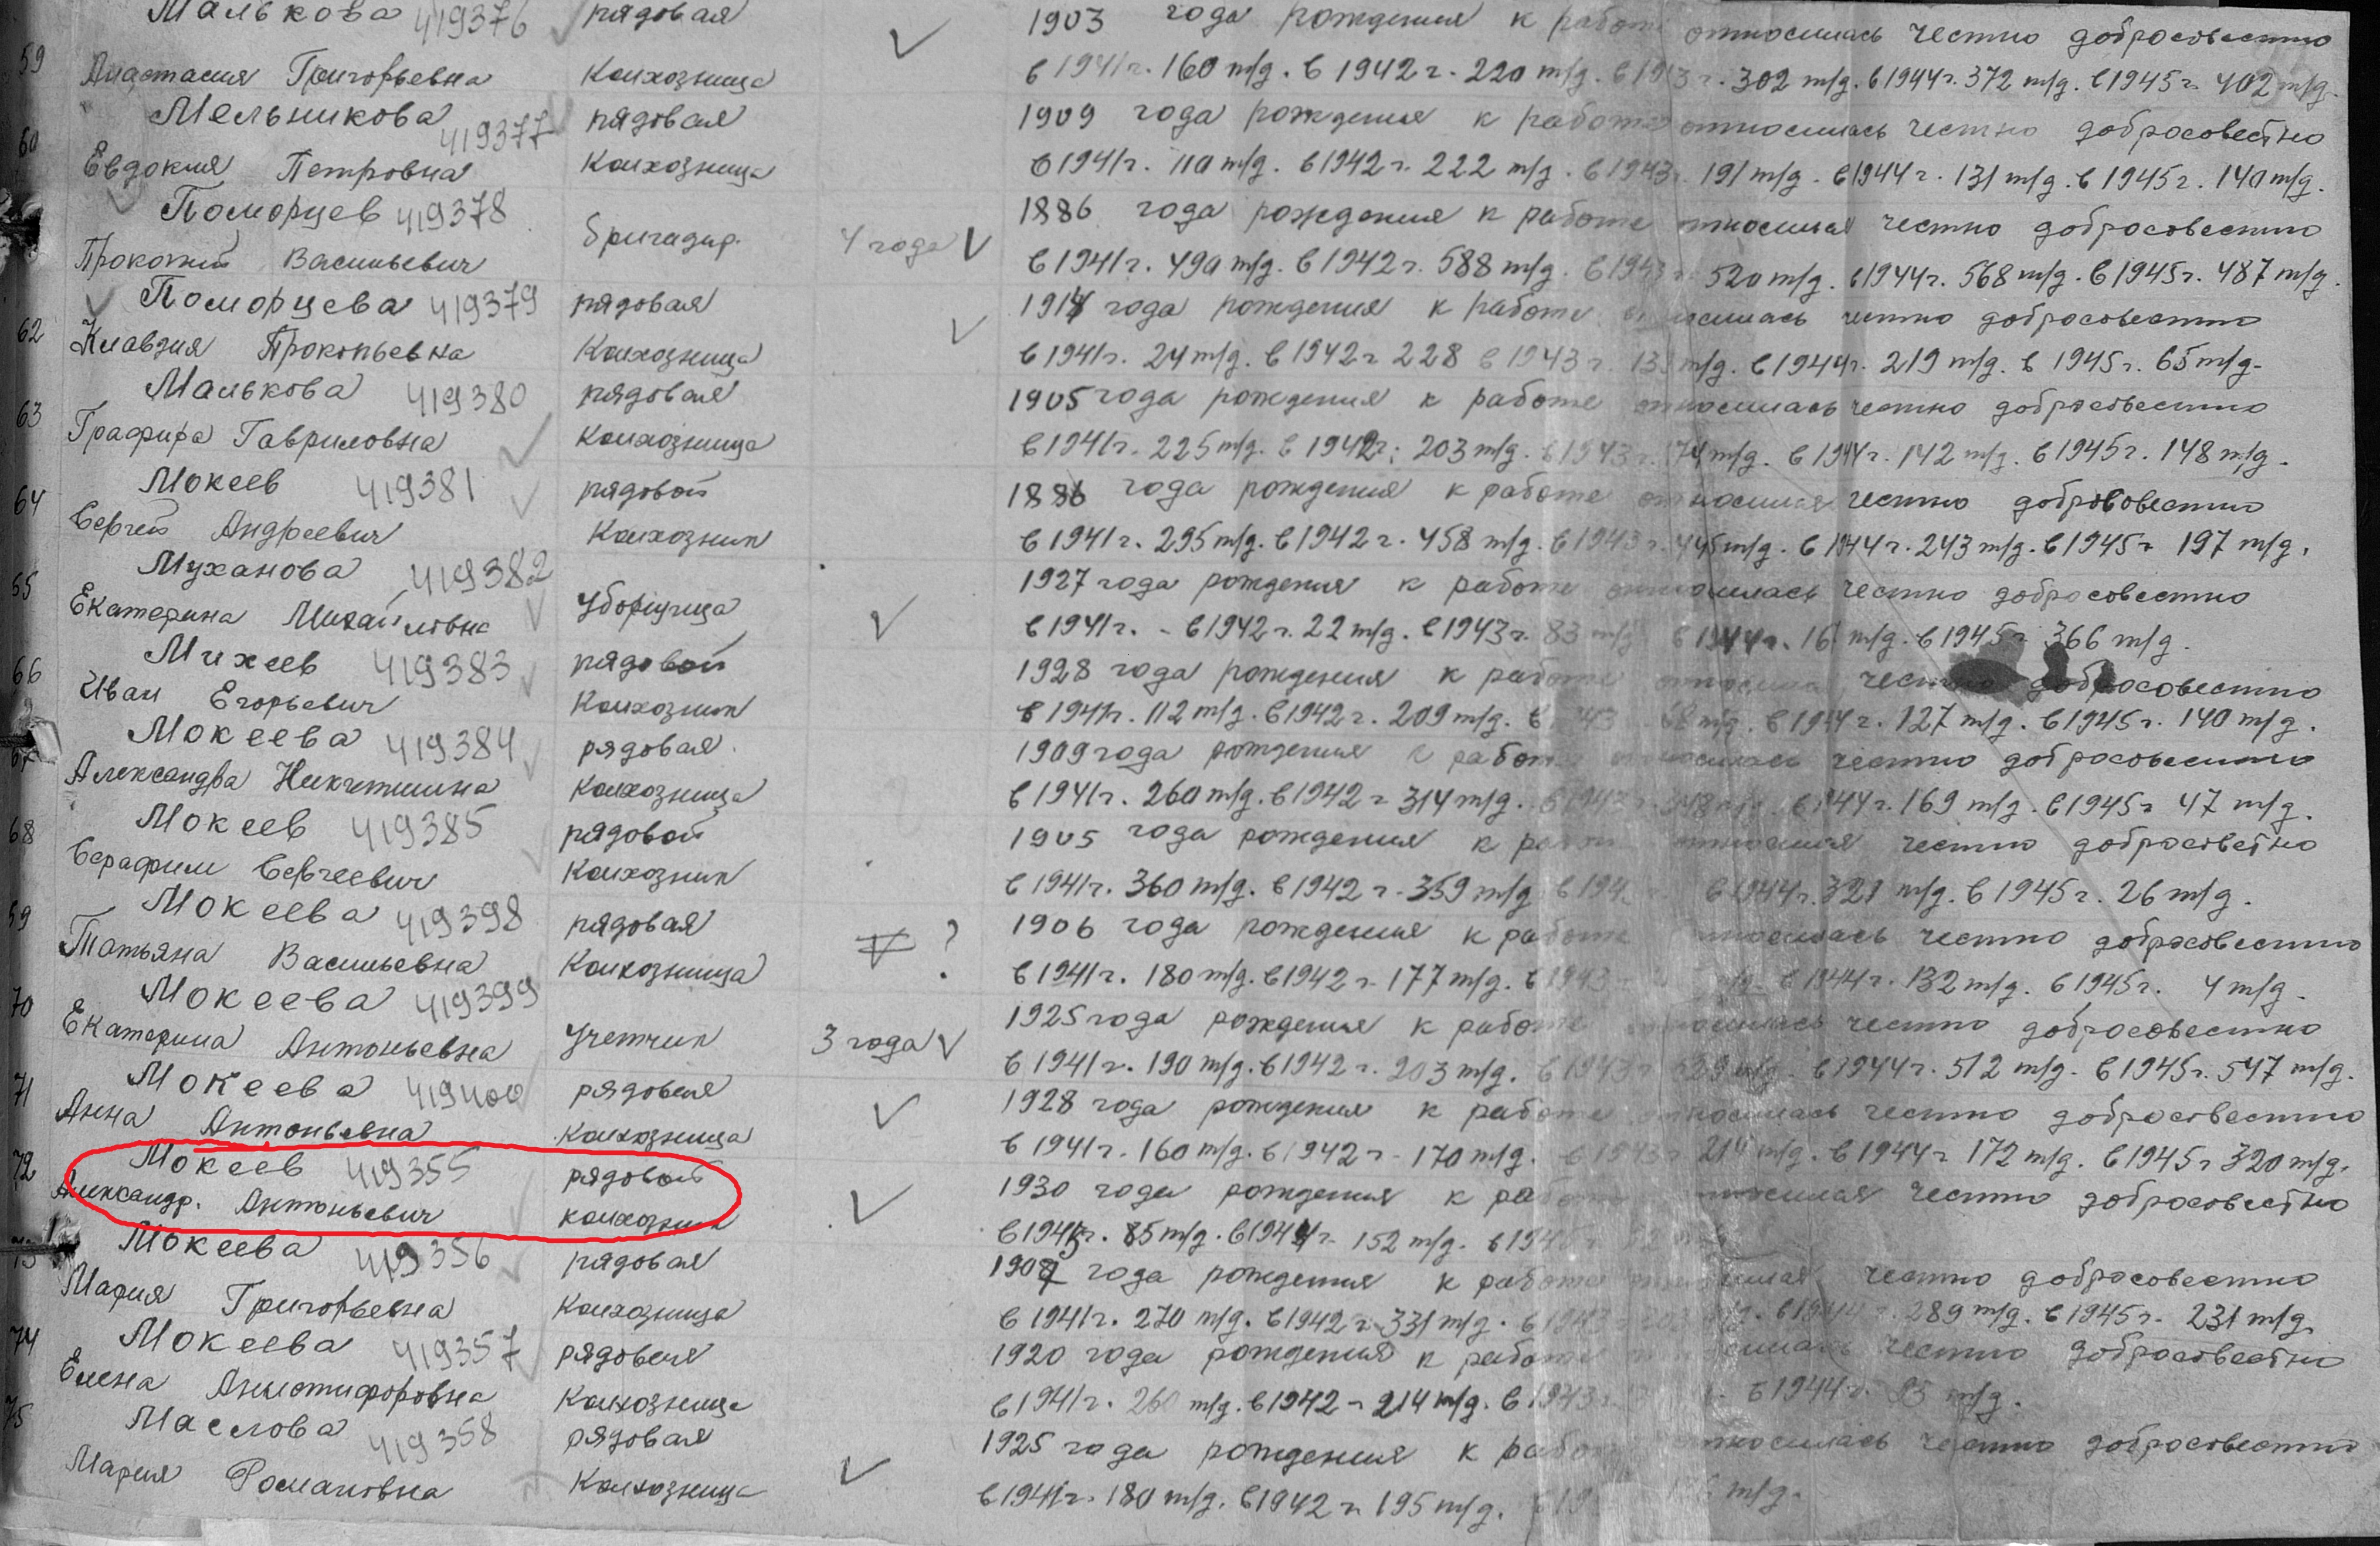 Малькова 419376 рядовая 1903 года рождения к работе относилась честно добросовестно
59 Анастасия Григорьевна колхозница в 1941г. 160 т/д. в 1942 г. 220 т/д. в 1943 г. 302 т/д. в 1944 г. 372 т/д. в 1945 г. 402 т/д.
Мельникова 419377 рядовая 1909 года рождения к работе относилась честно добросовестно
60 Евдокия Петровна колхозница в 1941г. 110 т/д. в 1942 г. 222 т/д. в 1943 191 т/д. в 1944 г. 131 т/д. в 1945 г. 140 т/д.
Поморцев 419378 бригадир. 4 года V 1886 года рождения к работе относился честно добросовестно
Прокопий Васильевич в 1941 г. 490 т/д. в 1942 г. 588 т/д. в 1943 г. 520 т/д. в 1944 г. 568 т/д. в 1945 г. 487 т/д.
Поморцева 419379 рядовая 1914 года рождения к работе относилась честно добросовестно
62 Клавдия Прокопьевна колхозница в 1941г. 24 т/д. в 1942 г. 228 в 1943 г. т/д. в 1944 г. 219 т/д. в 1945 г. 65 т/д.
Малькова 419380 рядовая 1905 года рождения к работе относилась честно добросовестно
63 Графира Гавриловна колхозница в 1941г. 225 т/д. в 1942 г. 203 т/д. в 1943 г. т/д. в 1944 г. 142 т/д. в 1945 г. 148 т/д.
Мокеев 419381 рядовой 1886 года рождения к работе относился честно добрововестно
64 Сергей Андреевич колхозник в 1941 г. 295 т/д. в 1942 г. 458 т/д. в 1943 г. 445 т/д. в 1944 г. 243 т/д. в 1945 г 197 т/д.
Муханова 419382 уборщица 1927 года рождения к работе относилась честно добросовестно
65 Екатерина Михайловна в 1941г. - в 1942 г. 22 т/д. в 1943 г. 83 т/д в 1944 г. т/д. в 1945 г 366 т/д.
Михеев 419383 рядовой 1928 года рождения к работе честно добросовестно
66 Иван Егорьевич колхозник в 1941г. 112 т/д. в 1942 г. 209 т/д. в т/д. в 1944 г. 127 т/д. в 1945 г. 140 т/д.
Мокеева 419384 рядовая. 1909 года рождения к работе относилась честно добросовестно
67 Александра Никитишна колхозница в 1941г. 260 т/д. в 1942 г 314 т/д. в 1944 г. 169 т/д. в 1945 г 47 т/д.
Мокеев 419385 рядовой 1905 года рождения к относился честно добросовестно
68 Серафим Сергеевич колхозник в 1941г. 360 т/д. в 1942 г. 359 т/д в 1944 г. 321 т/д. в 1945 г. 26 т/д.
Мокеева 419398 рядовая V ? 1906 года рождения к работе относилась честно добросовестно
69 Татьяна Васильевна колхозница в 1941г. 180 т/д. в 1942 г. 177 т/д. в 1943 т/д. в 1944 г. 132 т/д. в 1945 г. 4 т/д.
Мокеева 419399 учетчик 3 года V 1925 года рождения к работе относилась честно добросовестно
70 Екатерина Антоньевна в 1941 г. 190 т/д. в 1942 г. 203 т/д. в 1943 г т/д. в 1944 г. 512 т/д. в 1945 г. 547 т/д.
Мокеева 419400 рядовая 1928 года рождения к работе относилась честно добросовестно
71 Анна Антоньевна колхозница в 1941г. 160 т/д. в 1942 г. 170 т/д. в 1943 г 214 т/д. в 1944 г 172 т/д. в 1945 г 320 т/д.
72 Мокеев 419355 рядовой 1930 года рождения к относился честно добросовестно
Александр. Антоньевич колхозник в 1943г. 85 т/д. в 1944 г. 152 т/д. в 1945 г
73 Мокеева 419356 рядовая года рождения к работе честно добросовестно
Мария Григорьевна колхозница в 1941г. 270 т/д. в 1942 г. 331 т/д. в 1943 т/д. в 1944 г. 289 т/д. в 1945 г. 231 т/д.
74 Мокеева 419357 рядовая 1920 года рождения к работе относилась честно добросовестно
Елена Анистифоровна колхозница в 1941г. 260 т/д. в 1942 г 214 т/д. в 1943 г. в 1944 г. т/д.
75 Маслова 419358 рядовая 1925 года рождения к работе относилась честно добросовестно
Мария Романовна колхозница в 1941г. 180 т/д. в 1942 г. 195 т/д. т/д.